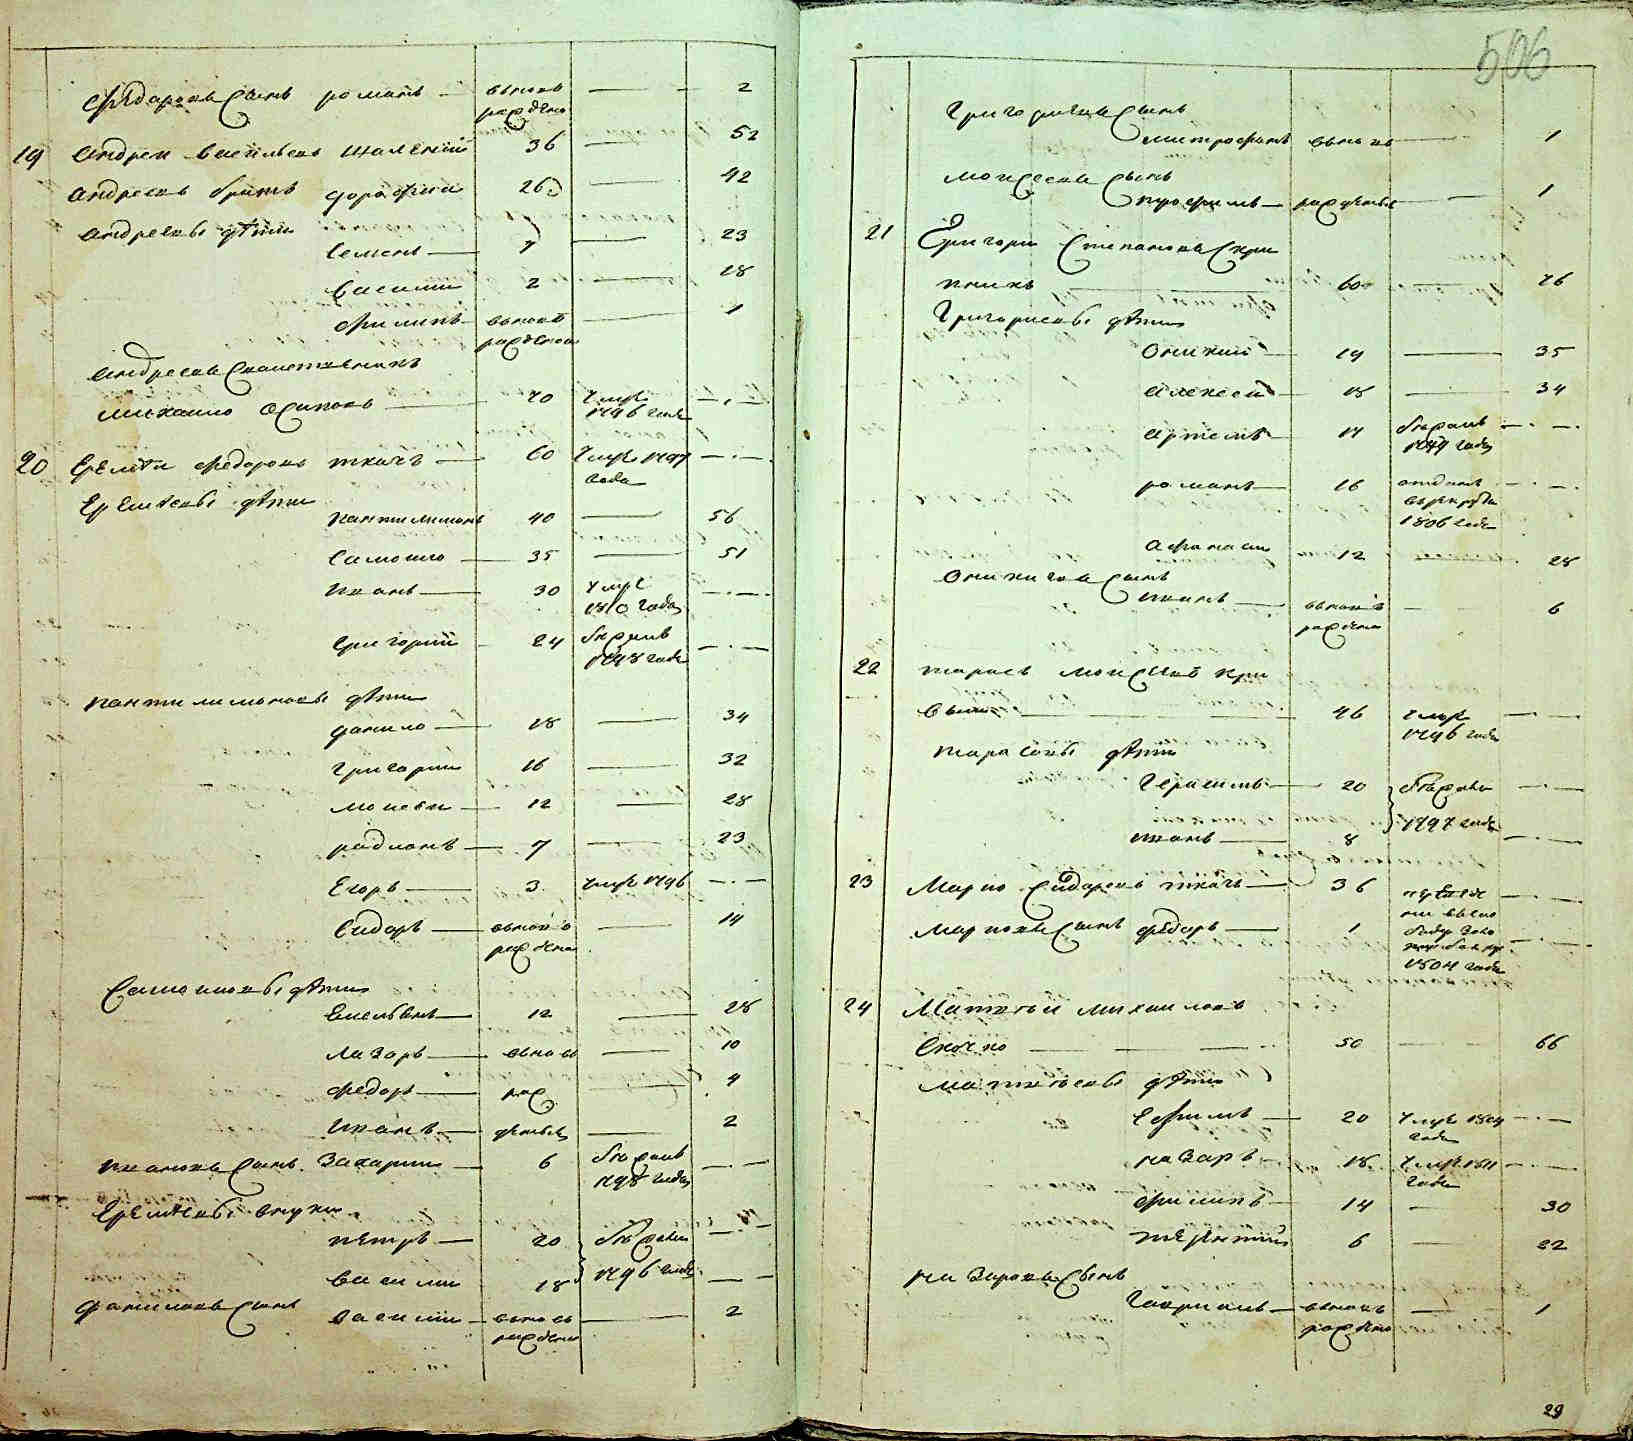 Федоровъ сынъ романъ вновь рожденъ 2
19 Андреи васильевъ шаленкий 36 52
Андреевъ братъ дорофии 26 42
Андреевы дѣти
Семенъ 7 23
василии 2 18
филипъ вновь рожденои 1
Андреевъ
михаило осиповъ 70 умре 1796 года
20 Еремѣи федоровъ ткачъ 60 умре 1797 года
Еремѣевы дѣти
пантилимонъ 40 56
Самоило 35 51
иванъ 30 умре 1810 года
григорий 24 бѣжалъ 1798 года
пантилимоновы дѣти
данило 18 34
григории 16 32
моисеи 12 28
радионъ 7 23
Егоръ 3 умре 1796
Сидоръ вновь рожденъ 14
Самоиловы дѣти
Емельянъ 12 28
лазаръ вновь 10
федоръ рож 4
иванъ денныя 2
ивановъ сынъ Захарии 6 бѣжалъ 1798 года
Еремѣевы внуки
петръ 20 бѣжали
василии 18 1796 года
даниловъ сынъ василии вновь рожденъ 2
506
григориевъ сынъ
митрофанъ вновь 1
моисеевъ сынъ
трофимъ рожденые 1
21 Григори Степановъ Скри
пникъ 60 76
Григориевы дѣти
Оникий 19 35
Алексеи 18 34
Артемъ 17 бѣжалъ 1799 года
романъ 16 отданъ в рекруты 1806 года
Афанасии 12 28
Оникиговъ сынъ
иванъ вновь рожденъ 6
22 тарасъ моисеивъ кри
46 умре 1796 года
тарасовы дѣти
герасимъ 20 бѣжали
иванъ 8 1797 года
23 Марко Сидоровъ ткачъ 36
Марковъ сынъ федоръ 1
1804 года
24 Матвѣи михаиловъ
Скочко 50 66
матвѣевы дѣти
Ефимъ 20 умре 1804 года
назаръ 18 умре 1811 года
филипъ 14 30
терентий 6 22
назаровъ сынъ
гаврилъ вновь рожденъ 1
29